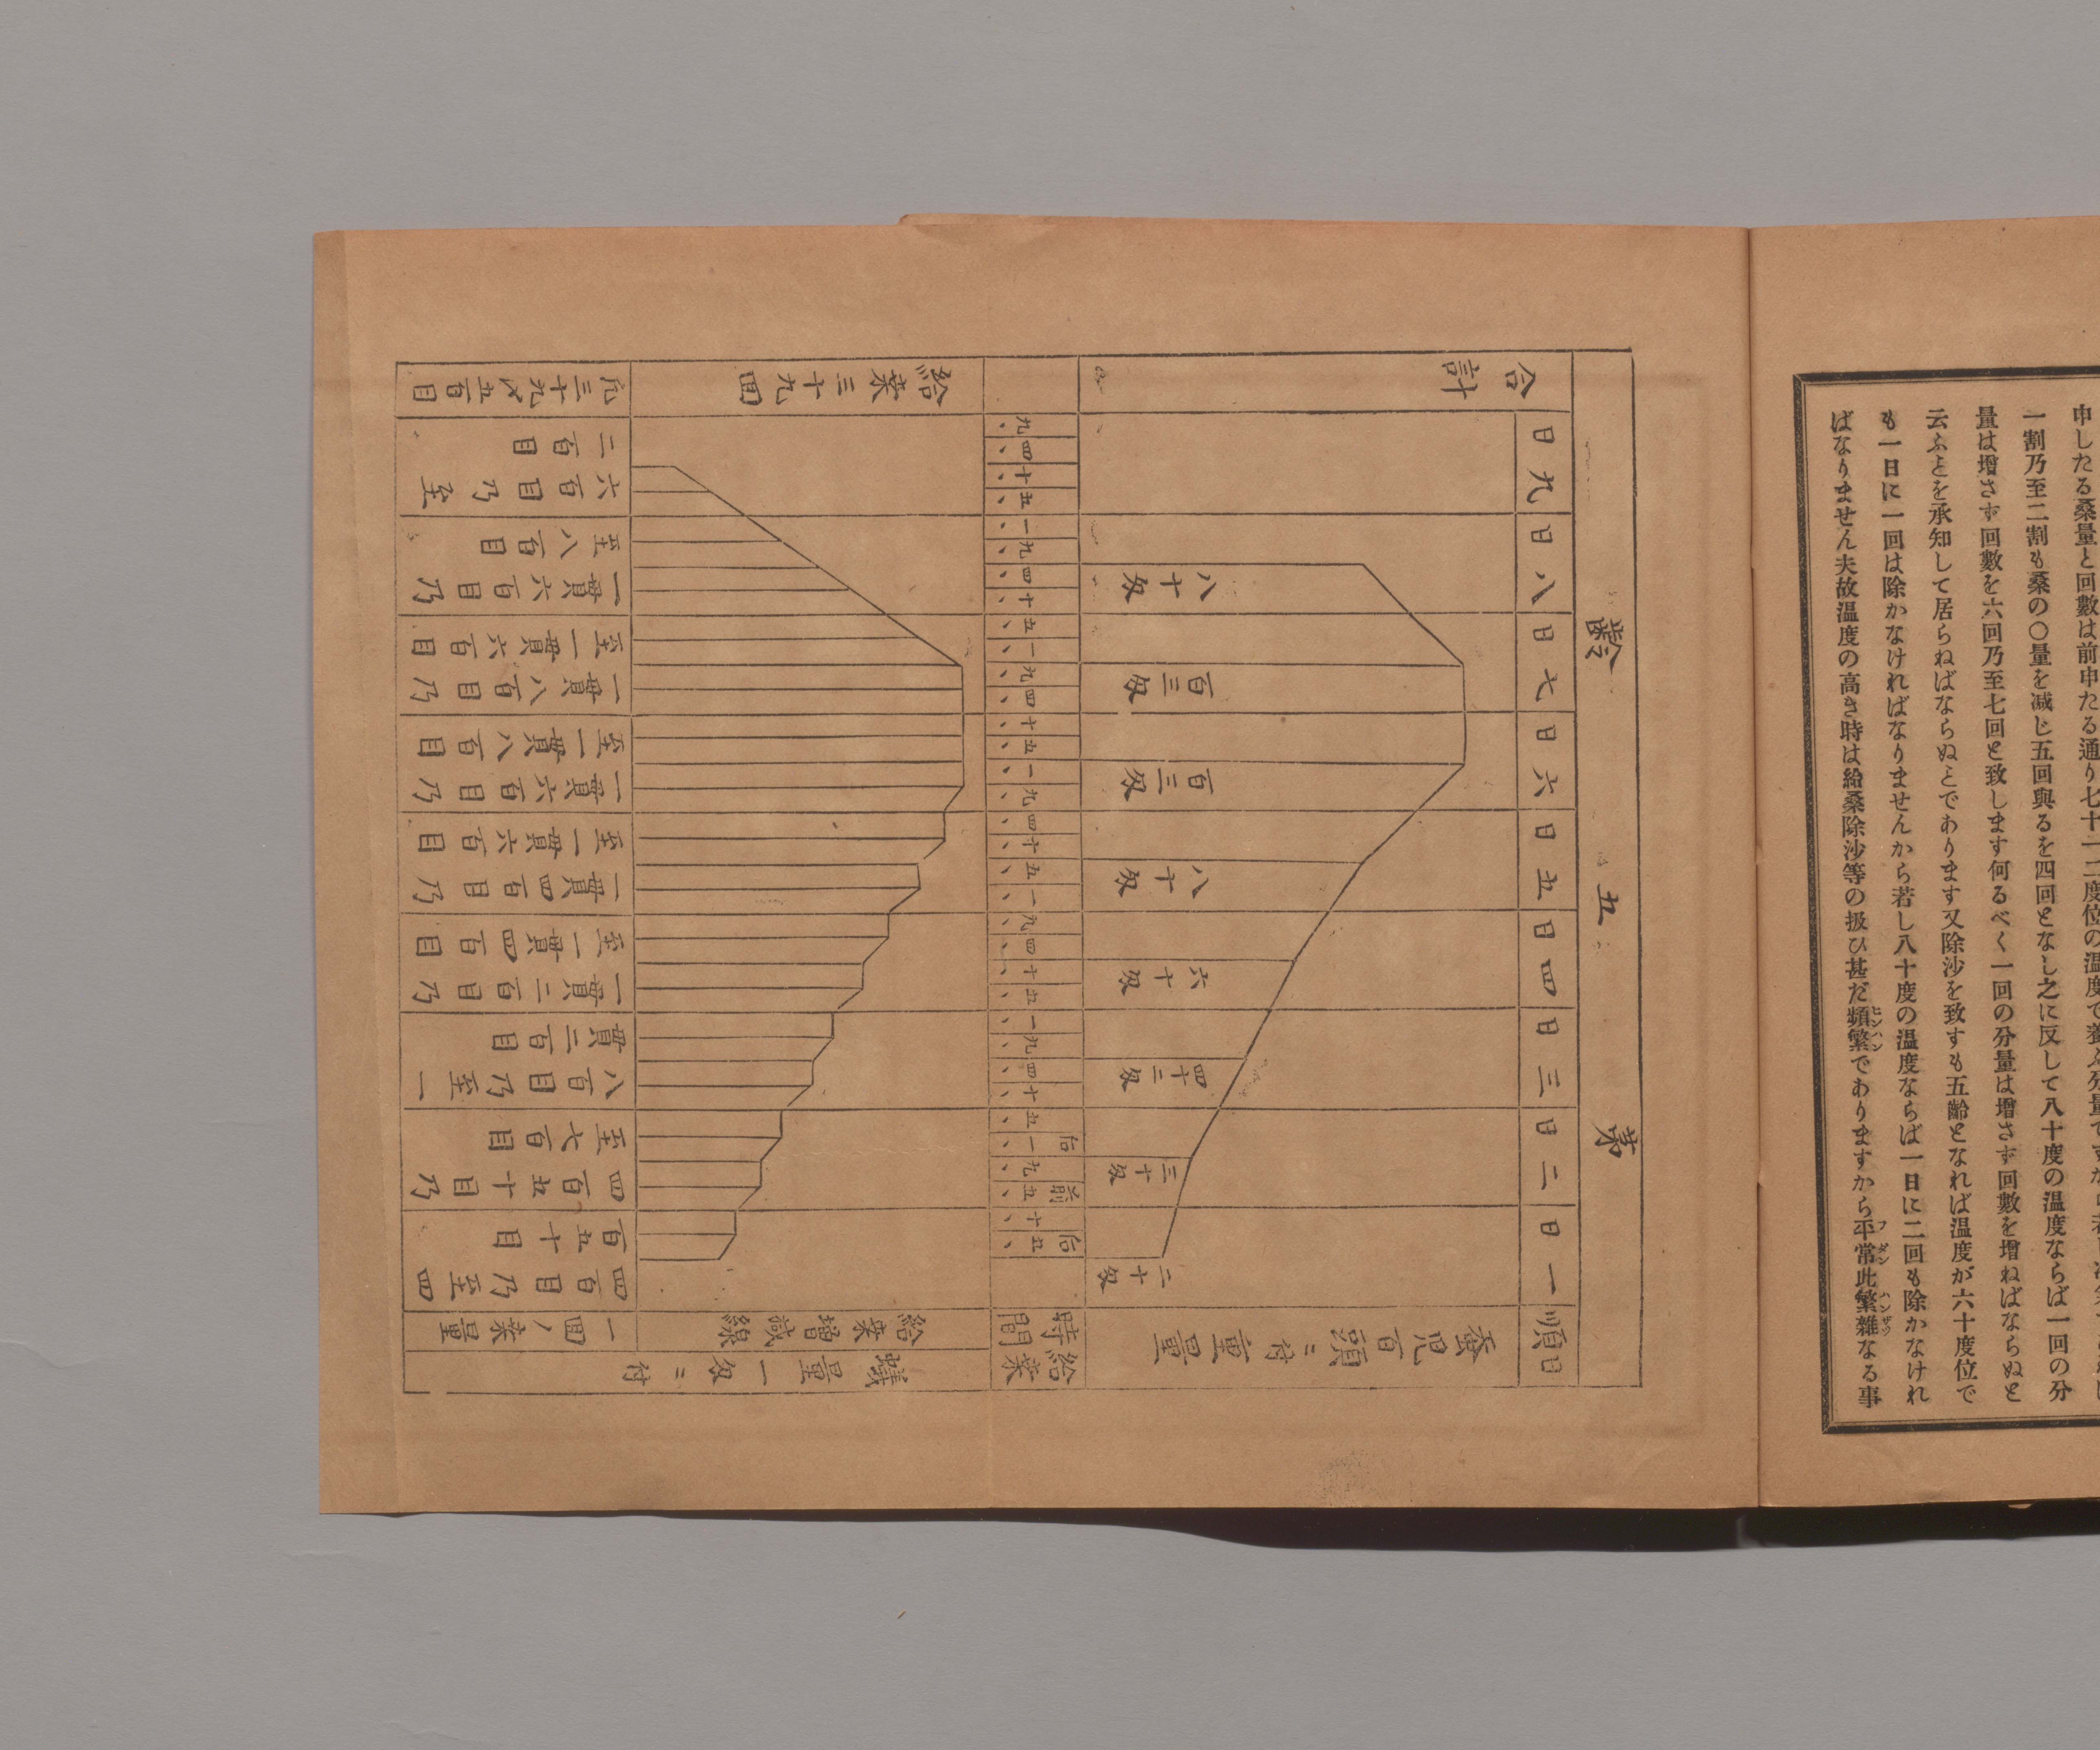 申したる桑量と回數は前申たる通り七十一二度位の温度で養ふ分量です
一割乃至二割も桑の〇量を減じ五回與るを四回となし之に反して八十度の温度ならば一回の分
量は增さず回數を六回乃至七回と致します何るべく一回の分量は增さず回數を增ねばならぬと
云ふとを承知して居らねばならぬとであります又除沙を致すも五齡となれば温度が六十度位で
も一日に一回は除かなければなりませんから若し八十度の温度ならば一日に二回も除かなけれ
ばなりません夫故温度の高き時は給桑除沙等の扱ひ甚だ頻繁ヒンパンでありますから平常フダン此繁雜ハンザツなる事
第五齡
順日
一日
二日
三日
四日
五日
六日
七日
八日
九日
合計
蚕児百頭ニ付重量
二十匁
三十匁
四十三匁
六十匁
八十匁
百三匁
百三匁
八十匁
給桑時間
后五、
十、
前五、
九、
后一、
五、
十、
四、
九、
一、
五、
十、
四、
九、
一、
五、
十、
四、
九、
一、
五、
十、
四、
九、
一、
五、
十、
四、
九、
一、
五、
十、
四、
九、
蟻量一匁ニ付
給桑增減線
給桑三十九回
一回ノ桑量
四百目乃至四
百五十目
四百五十目乃
至七百目
八百目乃至一
貫二百目
一貫二百目乃
至一貫四百目
一貫四百目乃
至一貫六百目
一貫六百目乃
至一貫八百目
一貫八百目乃
至一貫六百目
一貫六百目乃
至八百目
六百目乃至
二百目
凡三十九〆五百目